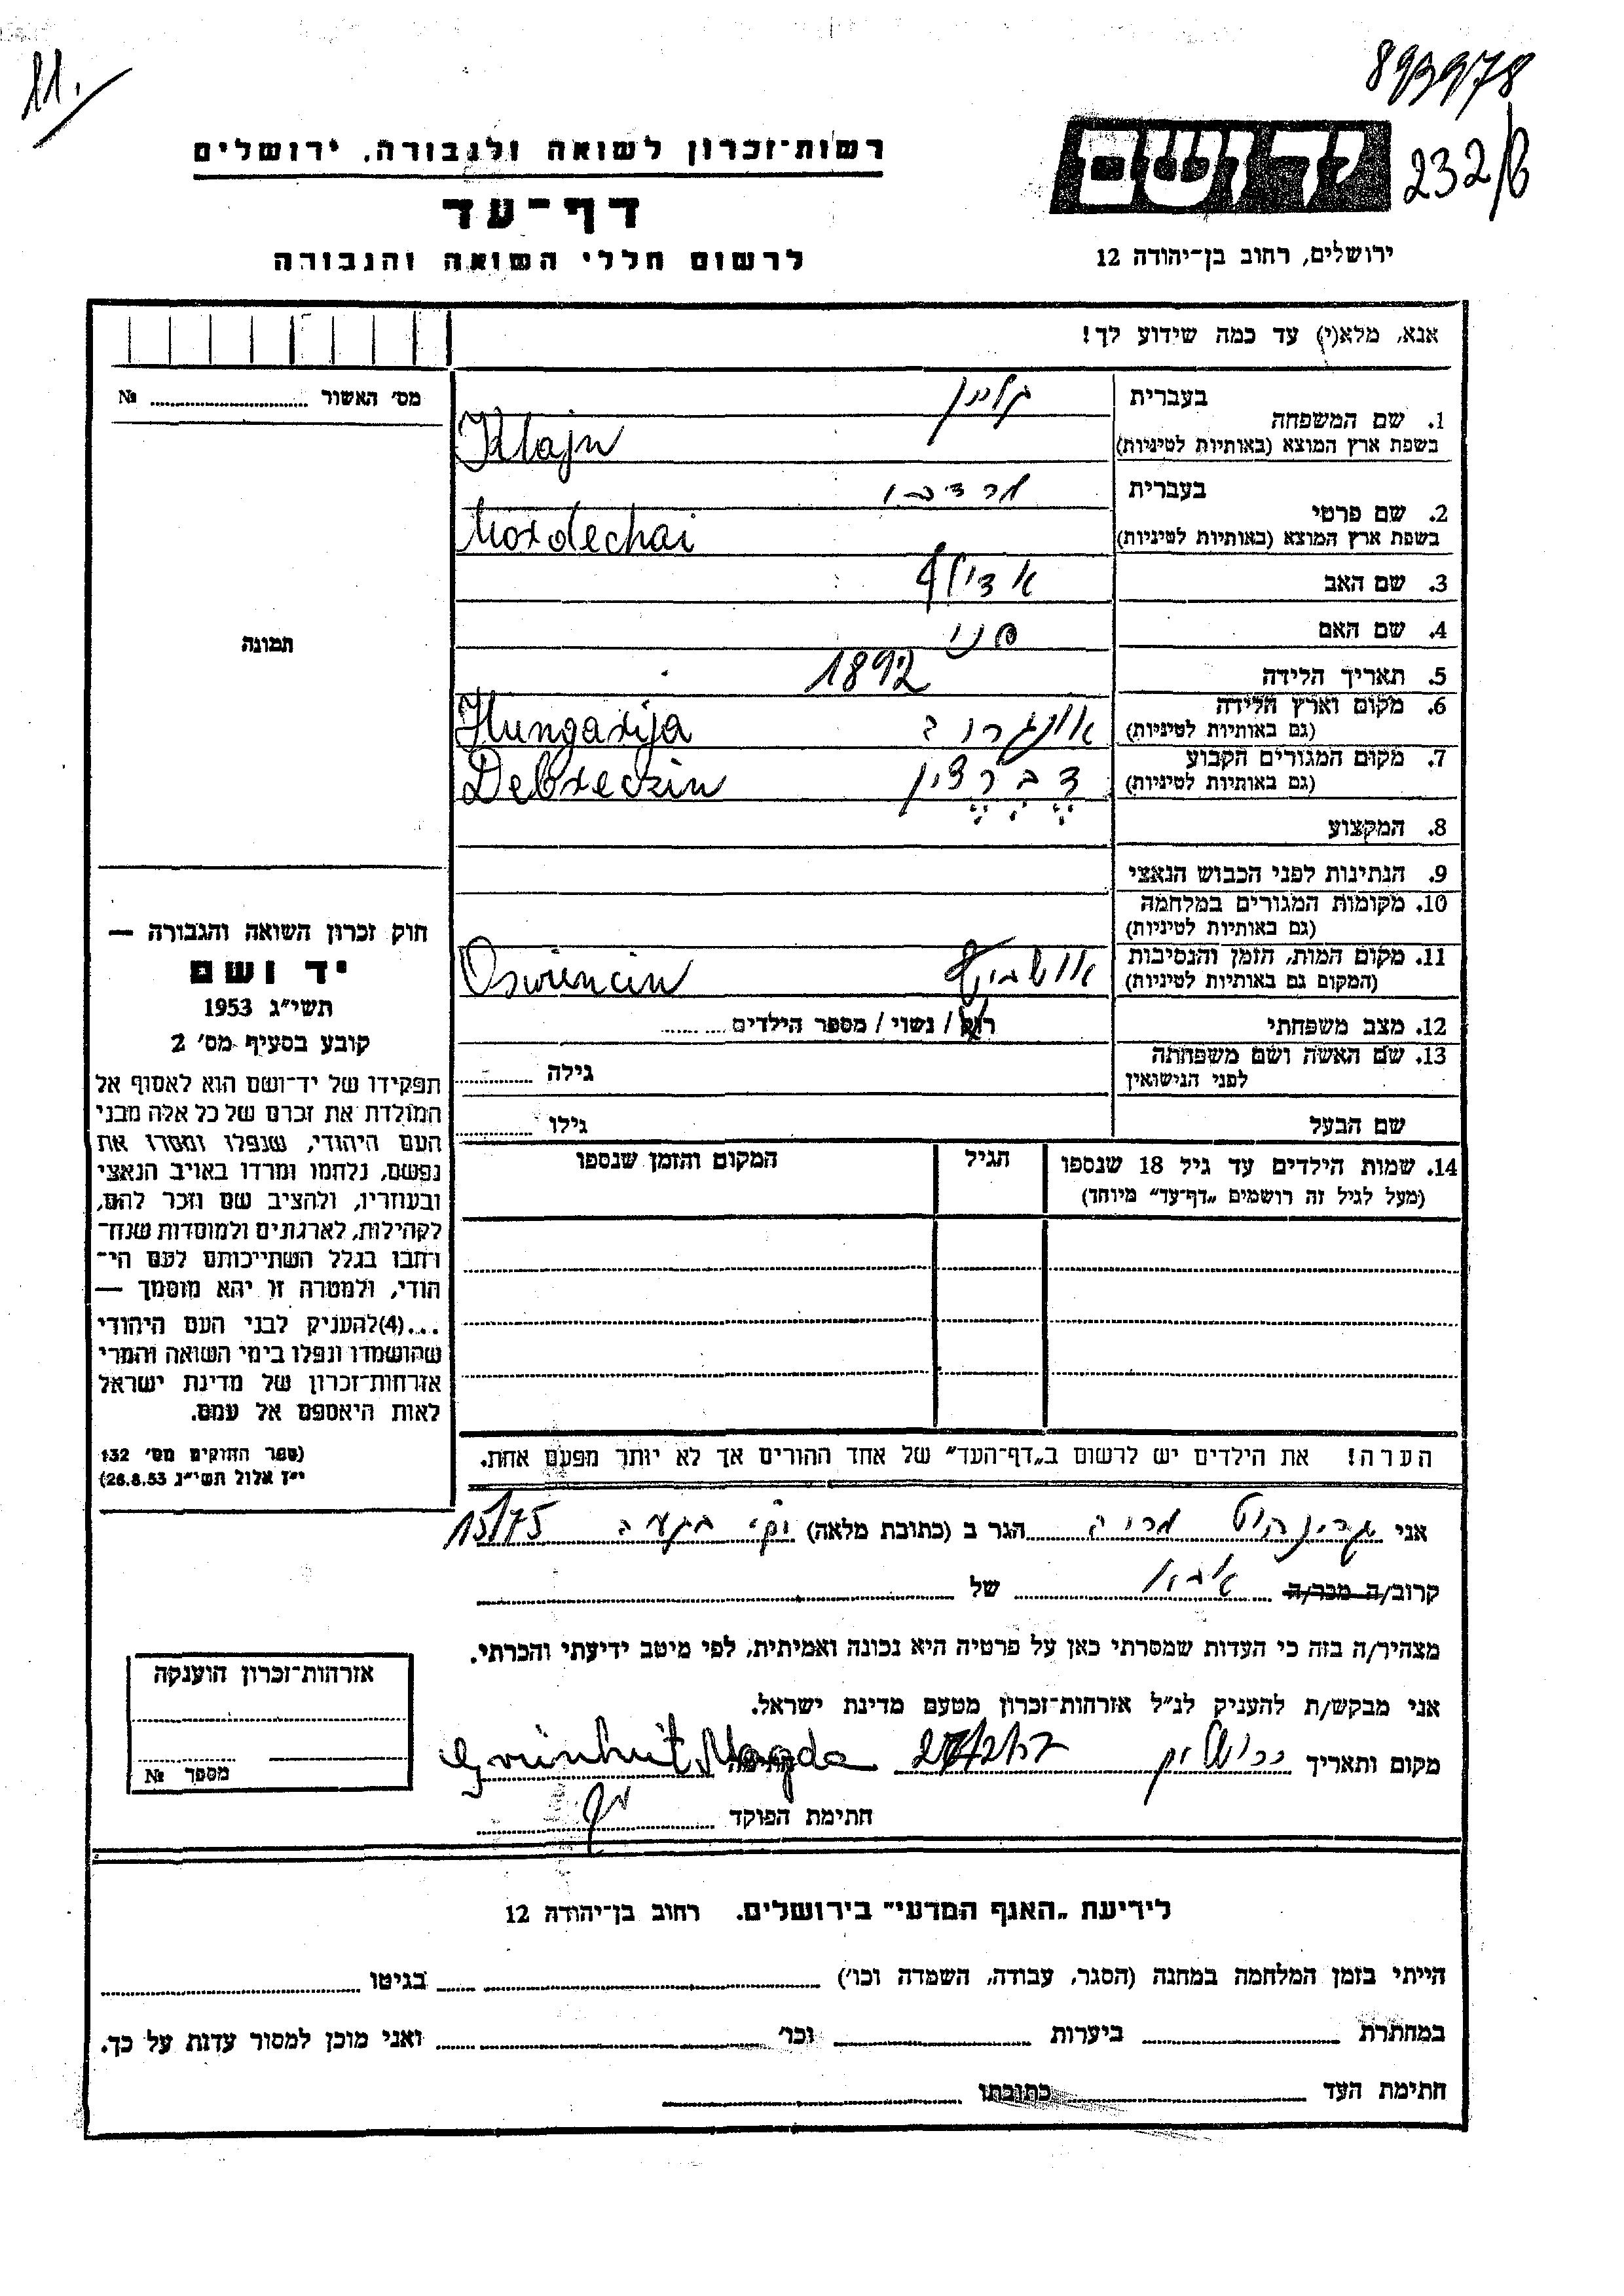 11.
893978
232/B
יד ושם
רשות-זכרון לשואה ולגבורה, ירושלים
דף-עד
לרשום חללי השואה והגבורה
ירושלים, רחוב בן-יהודה 12
אנא, מלא(י) עד כמה שידוע לך!
מס' האשור № ........
1. שם המשפחה
בעברית קליין
בשפת ארץ המוצא (באותיות לטיניות) Klajn
2. שם פרטי
בעברית מרדכי
בשפת ארץ המוצא (באותיות לטיניות) Mordechai
3. שם האב אדולף
4. שם האם פני
5. תאריך הלידה 1892
6. מקום וארץ הלידה
(גם באותיות לטיניות) Hungarija
7. מקום המגורים הקבוע
(גם באותיות לטיניות) דברצין Debreczin
8. המקצוע
9. הנתינות לפני הכבוש הנאצי
10. מקומות המגורים במלחמה
(גם באותיות לטיניות)
11. מקום המות, הזמן והנסיבות
(המקום גם באותיות לטיניות) אושביץ Oswiencin
12. מצב משפחתי רוק / נשוי / מספר הילדים ........
13. שם האשה ושם משפחתה
לפני הנישואין
גילה ........
שם הבעל
גילו ........
14. שמות הילדים עד גיל 18 שנספו
(מעל לגיל זה רושמים „דף-עד" מיוחד)
הגיל
המקום והזמן שנספו
תמונה
חוק זכרון השואה והגבורה —
יד ושם
תשי"ג 1953
קובע בסעיף מס' 2
תפקידו של יד-ושם הוא לאסוף אל
המולדת את זכרם של כל אלה מבני
העם היהודי, שנפלו ומסרו את
נפשם, נלחמו ומרדו באויב הנאצי
ובעוזריו, ולהציב שם וזכר להם,
לקהילות, לארגונים ולמוסדות שנח-
רבו בגלל השתייכותם לעם הי-
הודי, ולמטרה זו יהא מוסמך —
...(4)להעניק לבני העם היהודי
שהושמדו ונפלו בימי השואה והמרי
אזרחות-זכרון של מדינת ישראל
לאות היאספם אל עמם.
(ספר החוקים מס' 132
י"ז אלול תשי"ג 26.8.53)
הערה! את הילדים יש לרשום ב„דף-העד" של אחד ההורים אך לא יותר מפעם אחת.
אני גרינהוט הגר ב (כתובת מלאה) 15/75
קרוב/ה מכר/ה אבא של
מצהיר/ה בזה כי העדות שמסרתי כאן על פרטיה היא נכונה ואמיתית, לפי מיטב ידיעתי והכרתי.
אני מבקש/ת להעניק לנ"ל אזרחות-זכרון מטעם מדינת ישראל.
מקום ותאריך ירושלים חתימה Grünhut Magda
חתימת הפוקד
אזרחות-זכרון הוענקה
מספר №
לידיעת „האגף המדעי" בירושלים. רחוב בן-יהודה 12
הייתי בזמן המלחמה במחנה (הסגר, עבודה, השמדה וכו') בגיטו
במחתרת ביערות וכו' ואני מוכן למסור עדות על כך.
חתימת העד כתובתו